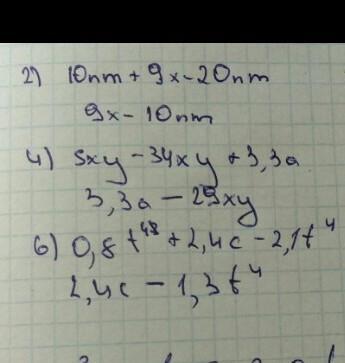 2) 10nm + 9x - 20nm
9x - 10nm
4) 5xy - 34xy + 3,3a
3,3a - 29xy
6) 0,8t⁴⁸ + 2,4c - 2,1t⁴
2,4c - 1,3t⁴